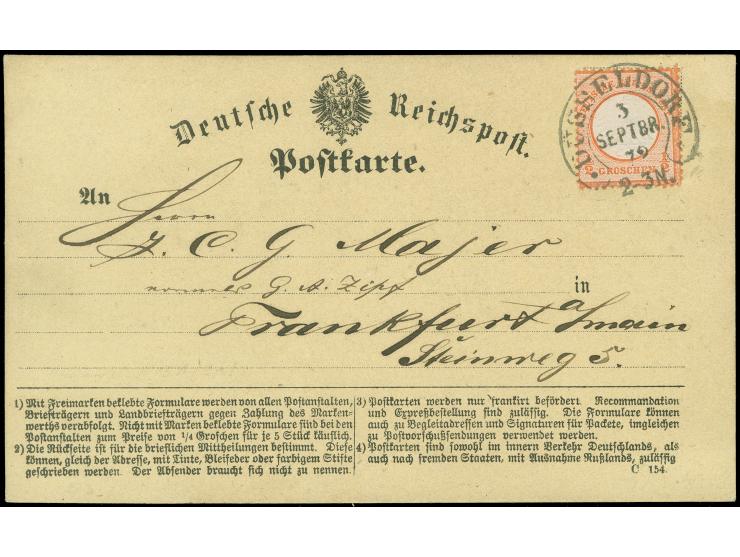 Deutsche Reichspost.
Postkarte.
DÜSSELDORF
3
SEPTBR.
72
2-3N.
1/2 GROSCHEN 1/2
An
Herrn
J. C. G. Majer
G. A. Zipf
in
Frankfurt a/main
Steinweg 5.
1) Mit Freimarken beklebte Formulare werden von allen Postanstalten,
Briefträgern und Landbriefträgern gegen Zahlung des Marken-
werths verabfolgt. Nicht mit Marken beklebte Formulare sind bei den
Postanstalten zum Preise von 1/4 Groschen für je 5 Stück käuflich.
2) Die Rückseite ist für die brieflichen Mittheilungen bestimmt. Diese
können, gleich der Adresse, mit Tinte, Bleifeder oder farbigem Stifte
geschrieben werden. Der Absender braucht sich nicht zu nennen.
3) Postkarten werden nur frankirt befördert. Recommandation
und Expreßbestellung sind zulässig. Die Formulare können
auch zu Begleitadressen und Signaturen für Packete, imgleichen
zu Postvorschußsendungen verwendet werden.
4) Postkarten sind sowohl im innern Verkehr Deutschlands, als
auch nach fremden Staaten, mit Ausnahme Rußlands, zulässig
C 154.